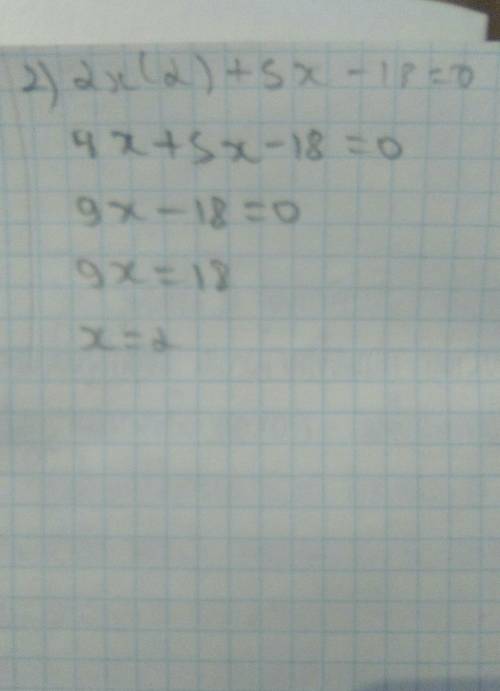 2) 2x(2)+5x-18=0
4x+5x-18=0
9x-18=0
9x=18
x=2